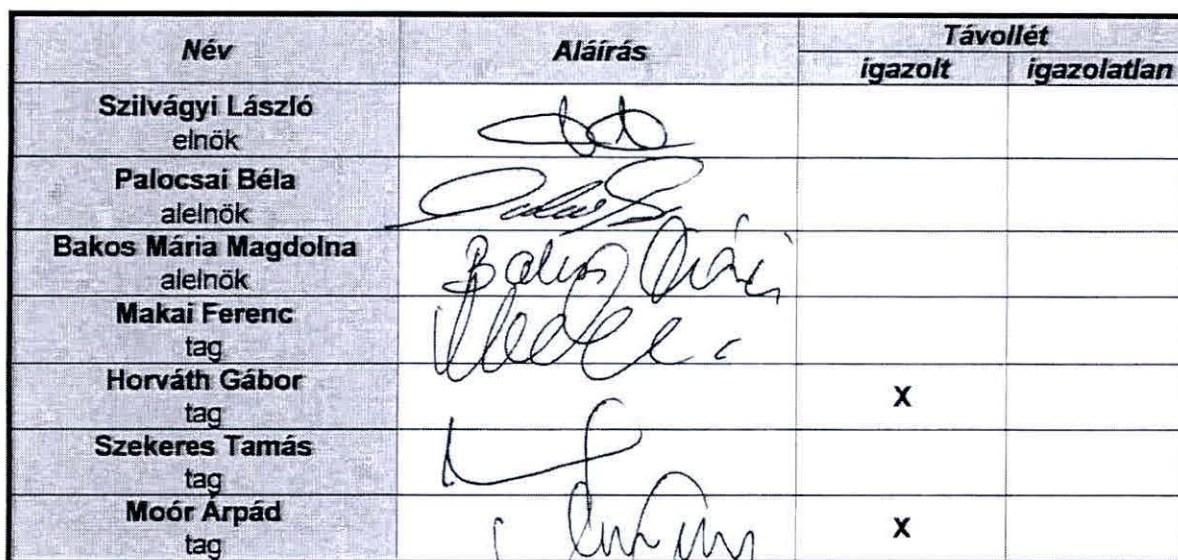 Név Aláírás Távollét
igazolt igazolatlan
Szilvágyi László
elnök
Palocsai Béla
alelnök
Bakos Mária Magdolna
alelnök
Makai Ferenc
tag
Horváth Gábor
tag
X
Szekeres Tamás
tag
Moór Árpád
tag
X